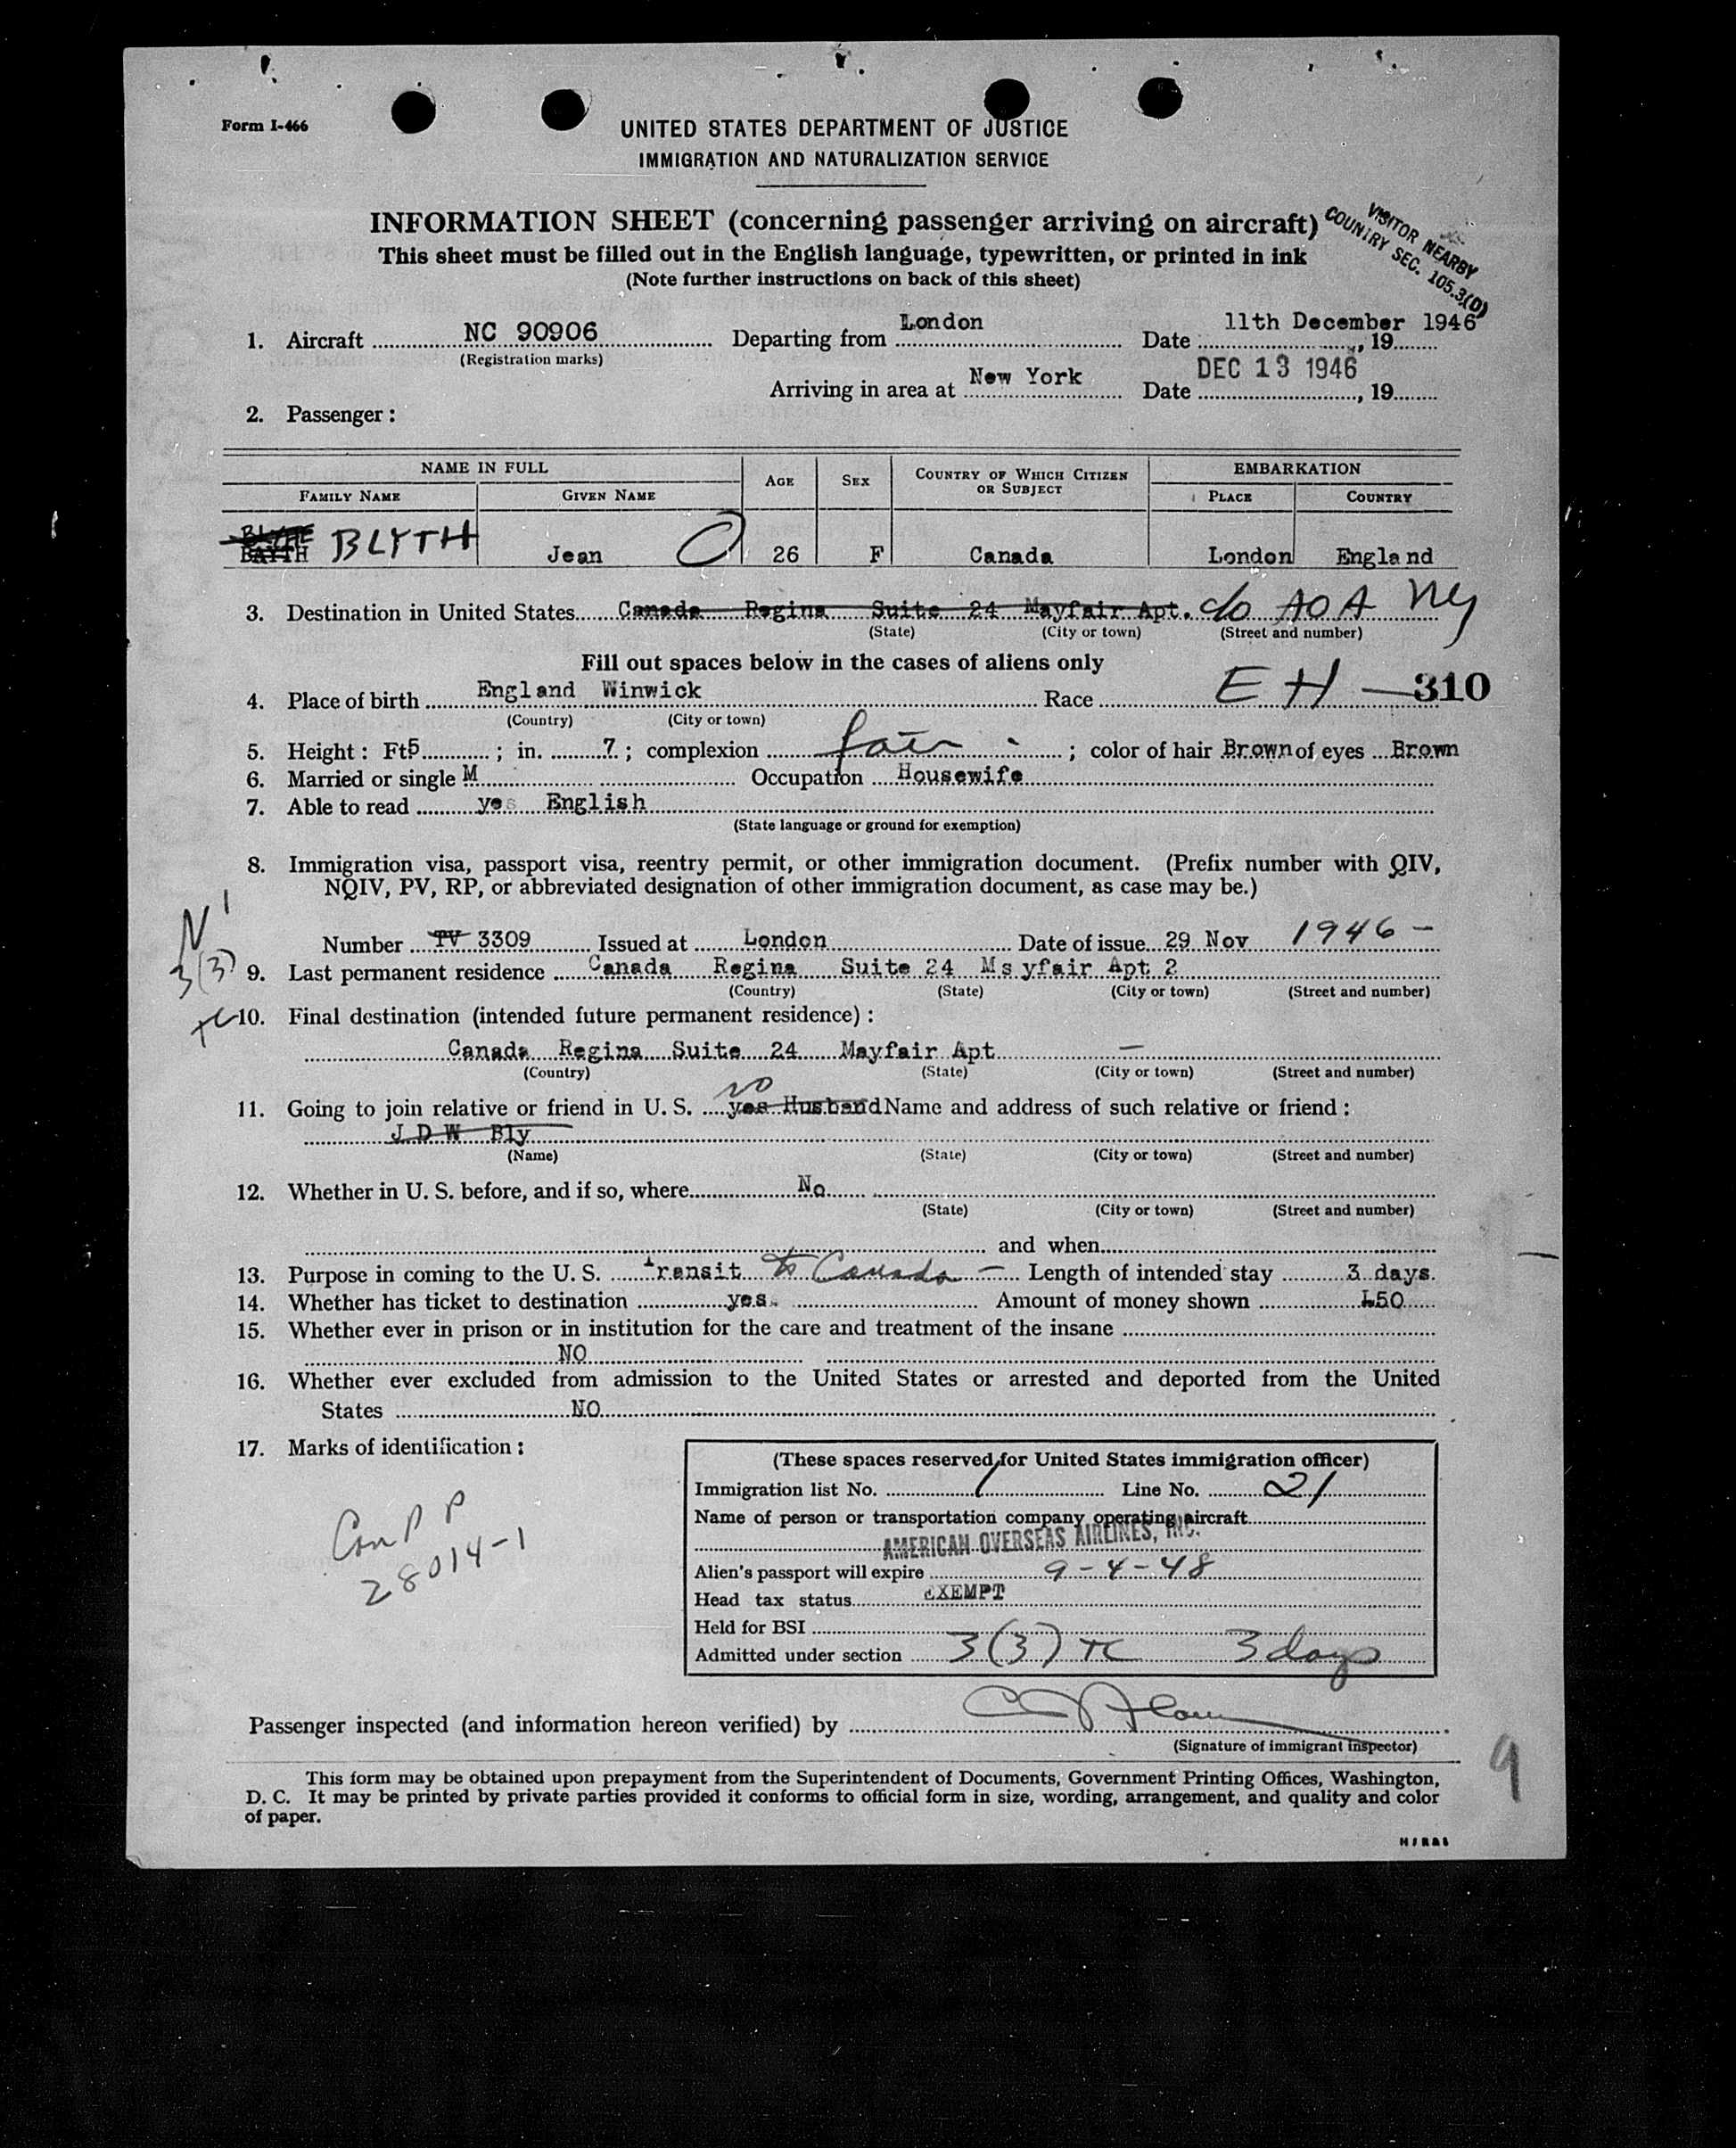 Form I-466
UNITED STATES DEPARTMENT OF JUSTICE
IMMIGRATION AND NATURALIZATION SERVICE
INFORMATION SHEET (concerning passenger arriving on aircraft)
VISITOR NEARBY
COUNTRY SEC. 105.3(D)
This sheet must be filled out in the English language, typewritten, or printed in ink
(Note further instructions on back of this sheet)
1. Aircraft NC 90906 Departing from London Date 11th December 1946, 19
(Registration marks)
Arriving in area at New York Date DEC 13 1946, 19
2. Passenger:
NAME IN FULL AGE SEX COUNTRY OF WHICH CITIZEN OR SUBJECT EMBARKATION
FAMILY NAME GIVEN NAME PLACE COUNTRY
BLYTH Jean 26 F Canada London England
3. Destination in United States Canada Regina Suite 24 Mayfair Apt. c/o AOA NY
(State) (City or town) (Street and number)
Fill out spaces below in the cases of aliens only
4. Place of birth England Winwick Race E H — 310
(Country) (City or town)
5. Height: Ft 5; in. 7; complexion fair; color of hair Brown of eyes Brown
6. Married or single M Occupation Housewife
7. Able to read yes English
(State language or ground for exemption)
8. Immigration visa, passport visa, reentry permit, or other immigration document. (Prefix number with QIV,
NQIV, PV, RP, or abbreviated designation of other immigration document, as case may be.)
Number TV 3309 Issued at London Date of issue 29 Nov 1946 -
3(3) 9. Last permanent residence Canada Regina Suite 24 Ms yfair Apt 2
(Country) (State) (City or town) (Street and number)
10. Final destination (intended future permanent residence):
Canada Regina Suite 24 Mayfair Apt —
(Country) (State) (City or town) (Street and number)
NO
11. Going to join relative or friend in U. S. yes Husband Name and address of such relative or friend:
J D W Bly
(Name) (State) (City or town) (Street and number)
12. Whether in U. S. before, and if so, where No
(State) (City or town) (Street and number)
and when
13. Purpose in coming to the U. S. transit to Canada - Length of intended stay 3 days.
14. Whether has ticket to destination yes. Amount of money shown £50
15. Whether ever in prison or in institution for the care and treatment of the insane
NO
16. Whether ever excluded from admission to the United States or arrested and deported from the United
States NO
17. Marks of identification:
Can P P
28014-1
(These spaces reserved for United States immigration officer)
Immigration list No. 1 Line No. 21
Name of person or transportation company operating aircraft
AMERICAN OVERSEAS AIRLINES, INC.
Alien's passport will expire 9-4-48
Head tax status EXEMPT
Held for BSI
Admitted under section 3(3) TC 3 days
Passenger inspected (and information hereon verified) by
(Signature of immigrant inspector)
9
This form may be obtained upon prepayment from the Superintendent of Documents, Government Printing Offices, Washington,
D. C. It may be printed by private parties provided it conforms to official form in size, wording, arrangement, and quality and color
of paper.